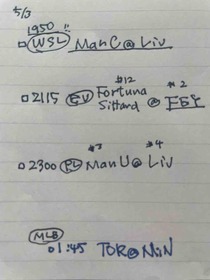 5/3
1950 !!
□ WSL ManC@Liv
#12 #2
□ 2115 EV Fortuna
Sittard @
#3 #4
□ 2300 PL ManU@Liv
MLB
□ 1:45 TOR@MiN